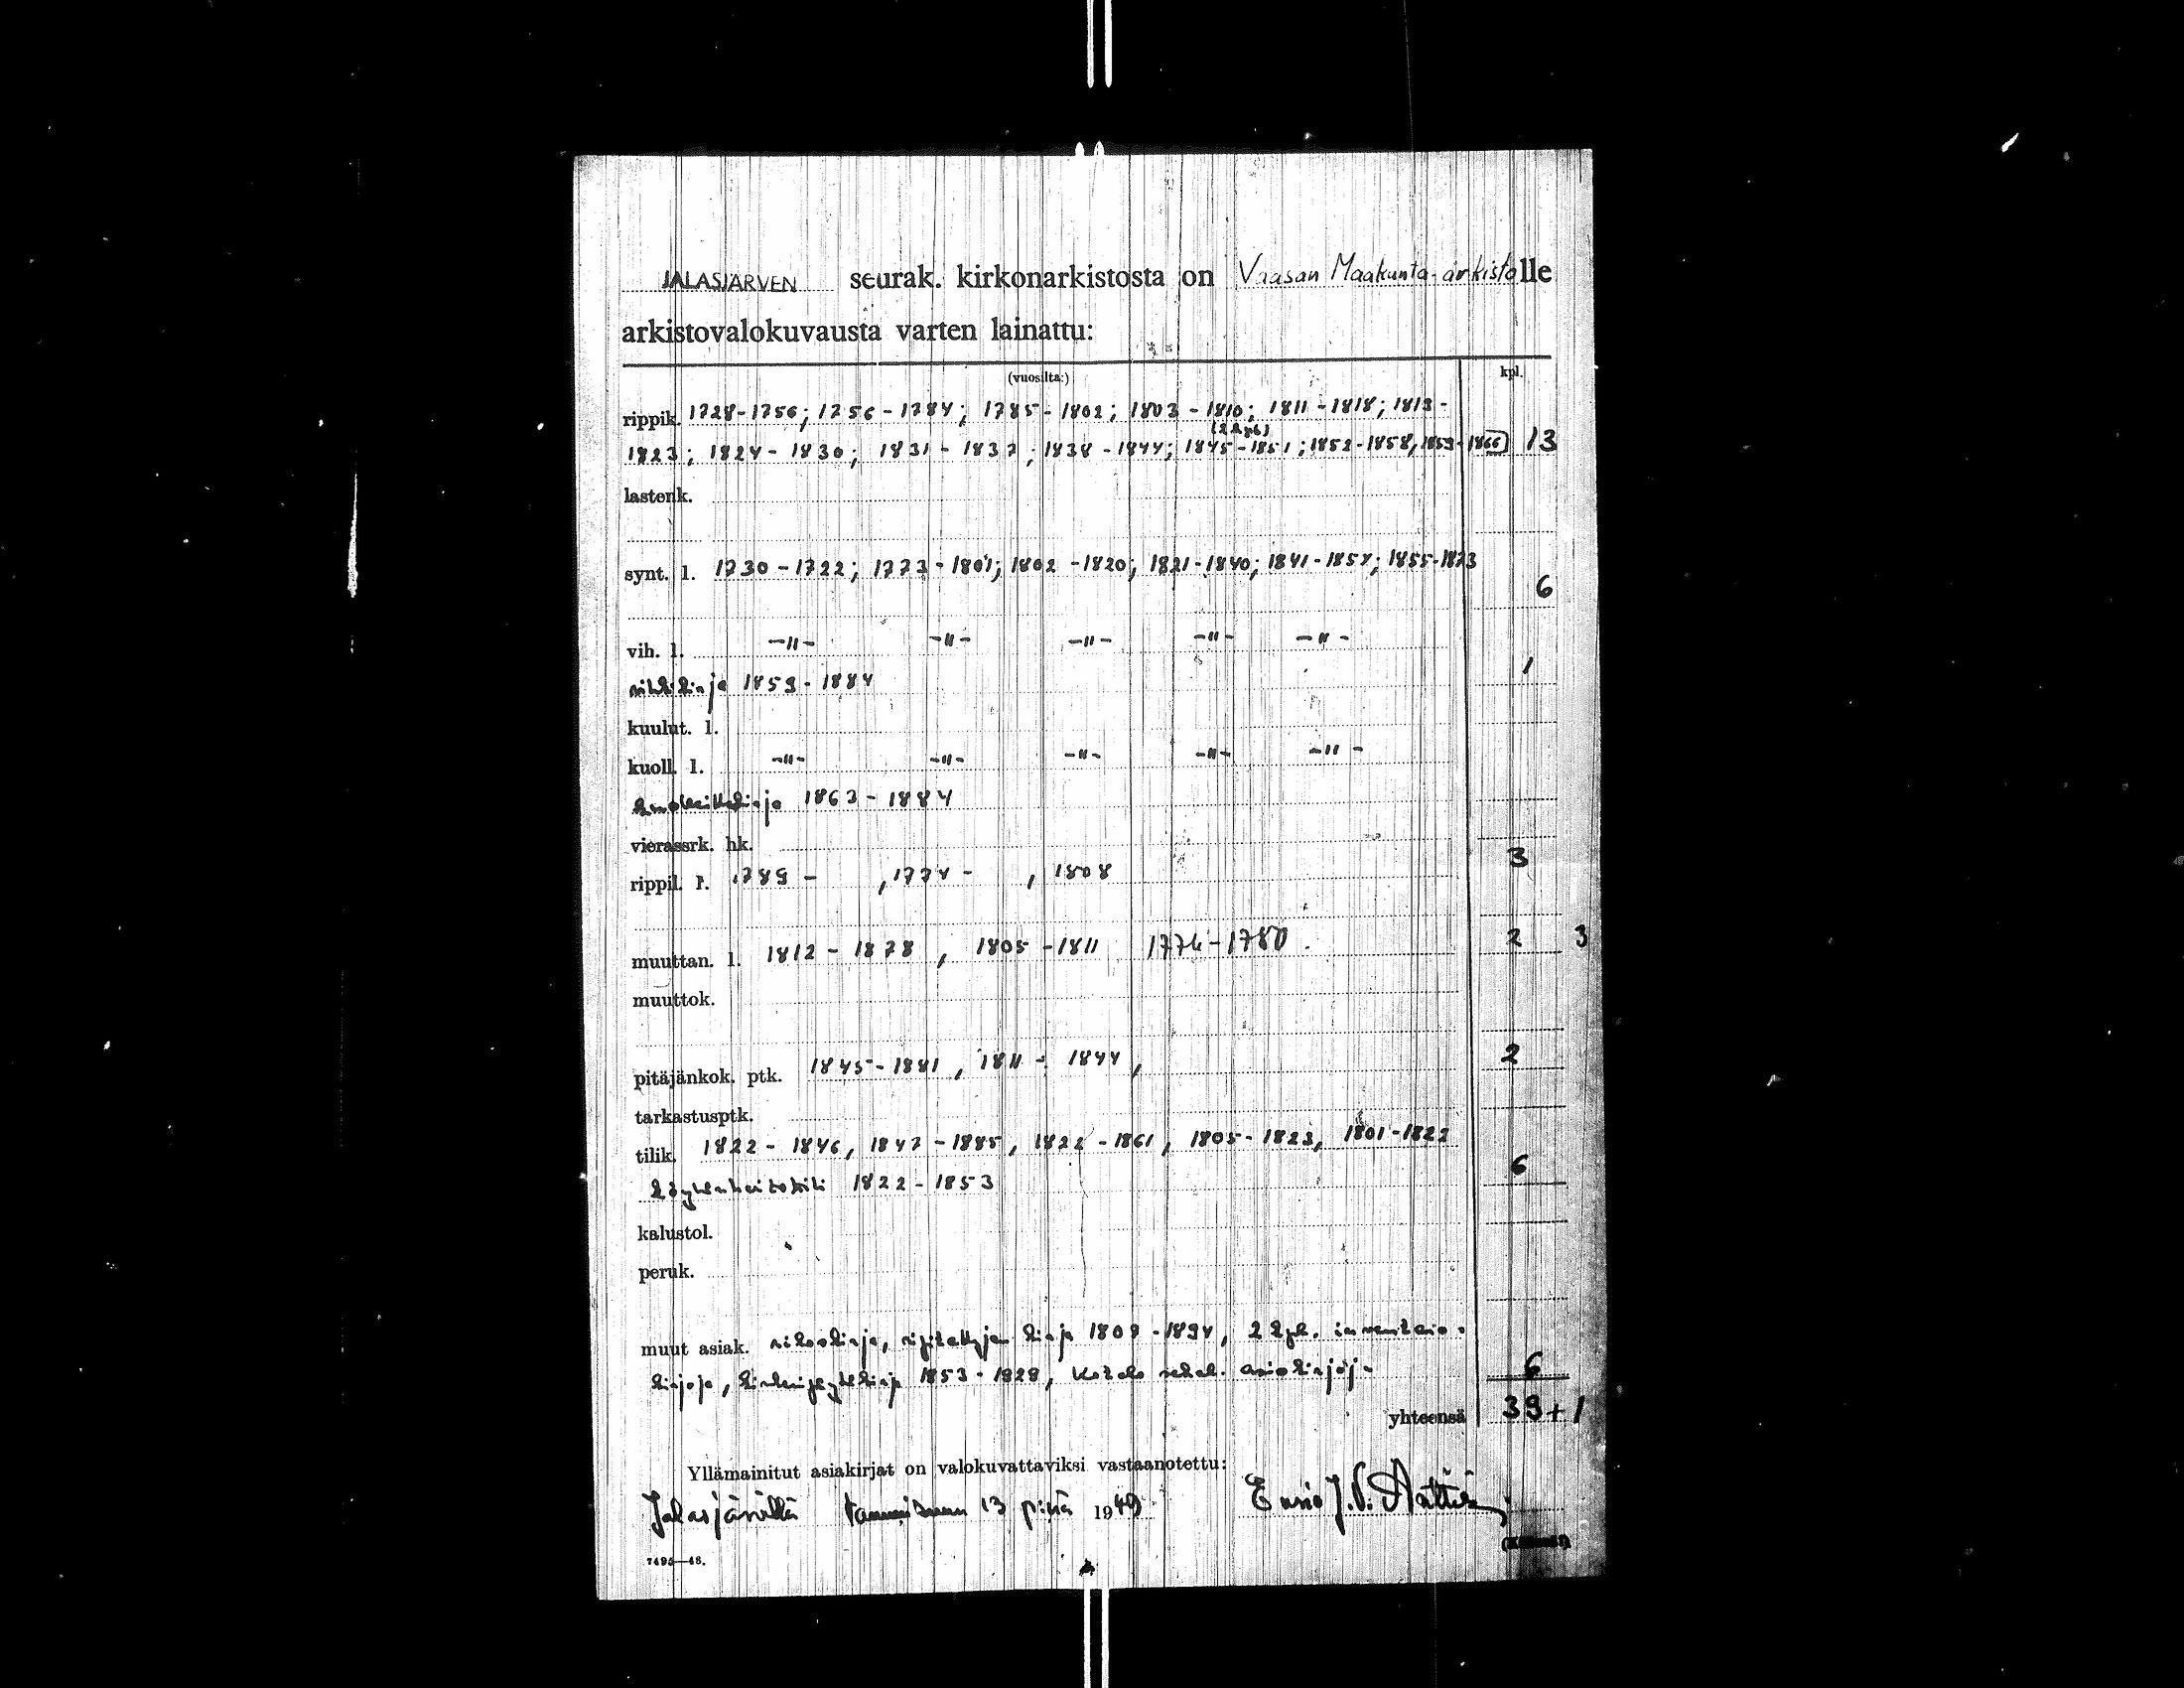 JALASJÄRVEN seurak. kirkonarkistosta on Vaasan Maakunta-arkistolle
arkistovalokuvausta varten lainattu:
(vuosilta:) kpl.
rippik. 1728-1756; 1756-1784; 1785-1802; 1803-1810; 1811-1818; 1818-
(2 kpl)
1823; 1824-1830; 1831-1837; 1838-1844; 1845-1851; 1852-1858, 1859-1866 13
lastenk.
synt. l. 1730-1722; 1773-1801; 1802-1820; 1821-1840; 1841-1854; 1855-1873
6
vih. l. -"- -"- -"- -"- -"-
vihkikirja 1859-1884 1
kuulut. l.
kuoll. l. -"- -"- -"- -"- -"-
1863-1884
vierassrk. hk.
rippil. l. 1789 - , 1774 - , 1808 3
muuttan. l. 1812-1878, 1805-1811 1774-1780. 2 3
muuttok.
pitäjänkok. ptk. 1845-1881, 1811-1844, 2
tarkastusptk.
tilik. 1822-1846, 1847-1885, 1822-1861, 1805-1823, 1801-1822
köyhäinhoitotili 1822-1853 6
kalustol.
peruk.
muut asiak. rikoskirja, ripitettyjen kirja 1809-1894, 2 kpl. inventaario-
kirjoja, 1853-1928, Kotelo sekal. asiakirjoja 6
yhteensä 39+1
Yllämainitut asiakirjat on valokuvattaviksi vastaanotettu:
Jalasjärvellä tammikuun 13 p:nä 1949 Ensio J.
7495—48.